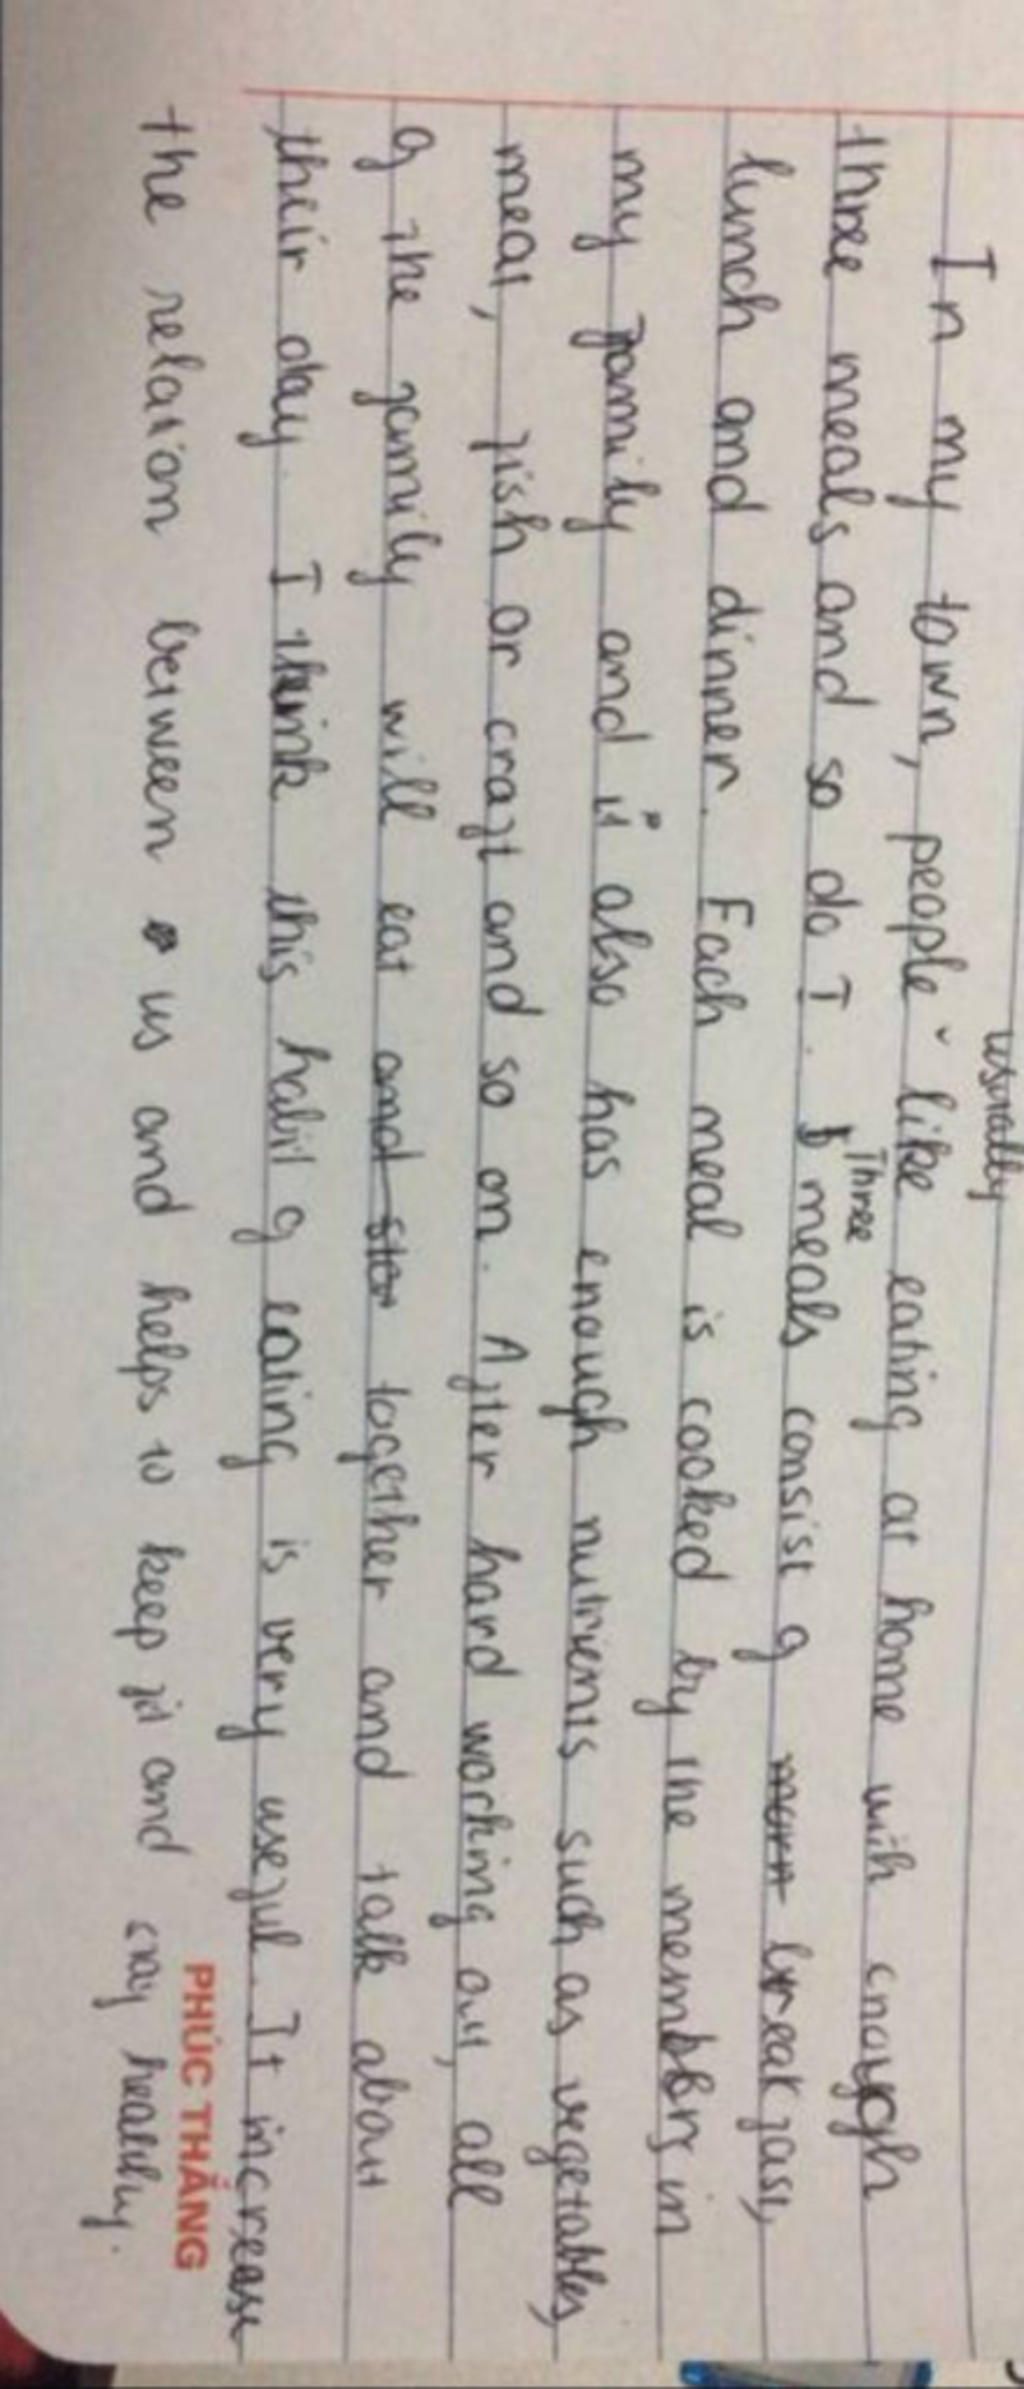 usually
In my town, people ˇ like eating at home with enough
Three
three meals and so do I. meals consist of breakfast,
lunch and dinner. Each meal is cooked by the members in
my family and it also has enough nutrients such as vegetables,
meat, fish or craft and so on. After hard working out, all
of the family will eat and together and talk about
their day. I think this habit of eating is very useful. It increase
the relation between us and helps to keep fit and
stay healthy.
PHÚC THẮNG